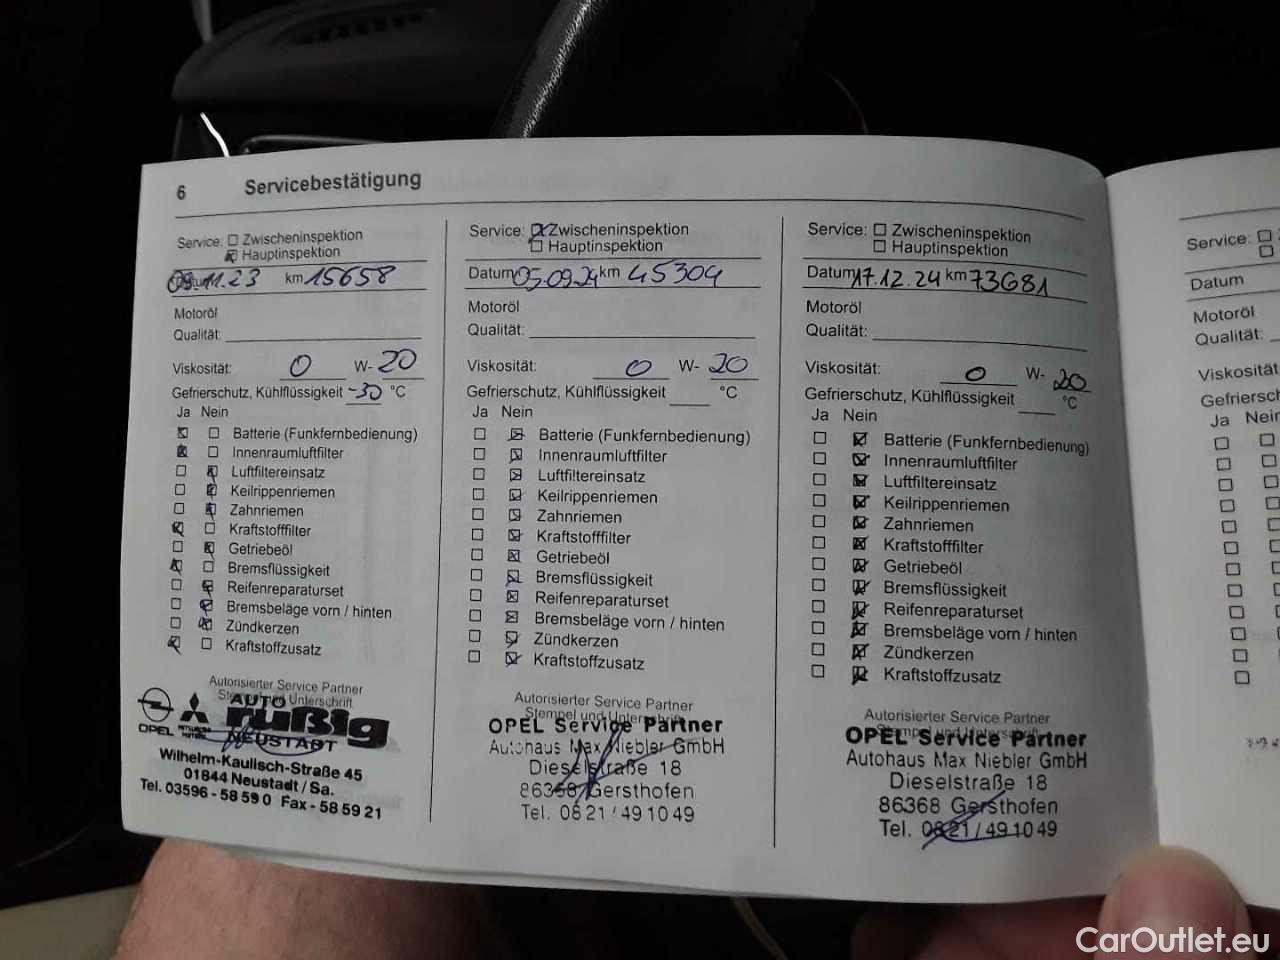 6 Servicebestätigung
Service: Zwischeninspektion
Hauptinspektion
Datum 09.11.23 km 15658
Motoröl
Qualität:
Viskosität: 0 W- 20
Gefrierschutz, Kühlflüssigkeit -30 °C
Ja Nein
Batterie (Funkfernbedienung)
Innenraumluftfilter
Luftfiltereinsatz
Keilrippenriemen
Zahnriemen
Kraftstofffilter
Getriebeöl
Bremsflüssigkeit
Reifenreparaturset
Bremsbeläge vorn / hinten
Zündkerzen
Kraftstoffzusatz
Autorisierter Service Partner
Stempel und Unterschrift
OPEL
AUTO
rußig
NEUSTADT
Wilhelm-Kaulisch-Straße 45
01844 Neustadt / Sa.
Tel. 03596 - 58 59 0 Fax - 58 59 21
Service: Zwischeninspektion
Hauptinspektion
Datum 05.09.24 km 45304
Motoröl
Qualität:
Viskosität: 0 W- 20
Gefrierschutz, Kühlflüssigkeit °C
Ja Nein
Batterie (Funkfernbedienung)
Innenraumluftfilter
Luftfiltereinsatz
Keilrippenriemen
Zahnriemen
Kraftstofffilter
Getriebeöl
Bremsflüssigkeit
Reifenreparaturset
Bremsbeläge vorn / hinten
Zündkerzen
Kraftstoffzusatz
Autorisierter Service Partner
Stempel und Unterschrift
OPEL Service Partner
Autohaus Max Niebler GmbH
Dieselstraße 18
86368 Gersthofen
Tel. 0821/491049
Service: Zwischeninspektion
Hauptinspektion
Datum 17.12.24 km 73681
Motoröl
Qualität:
Viskosität: 0 W- 20
Gefrierschutz, Kühlflüssigkeit °C
Ja Nein
Batterie (Funkfernbedienung)
Innenraumluftfilter
Luftfiltereinsatz
Keilrippenriemen
Zahnriemen
Kraftstofffilter
Getriebeöl
Bremsflüssigkeit
Reifenreparaturset
Bremsbeläge vorn / hinten
Zündkerzen
Kraftstoffzusatz
Autorisierter Service Partner
Stempel und Unterschrift
OPEL Service Partner
Autohaus Max Niebler GmbH
Dieselstraße 18
86368 Gersthofen
Tel. 0821/491049
Service:
Datum
Motoröl
Qualität:
Viskosität
Gefriersch
Ja Nein
CarOutlet.eu